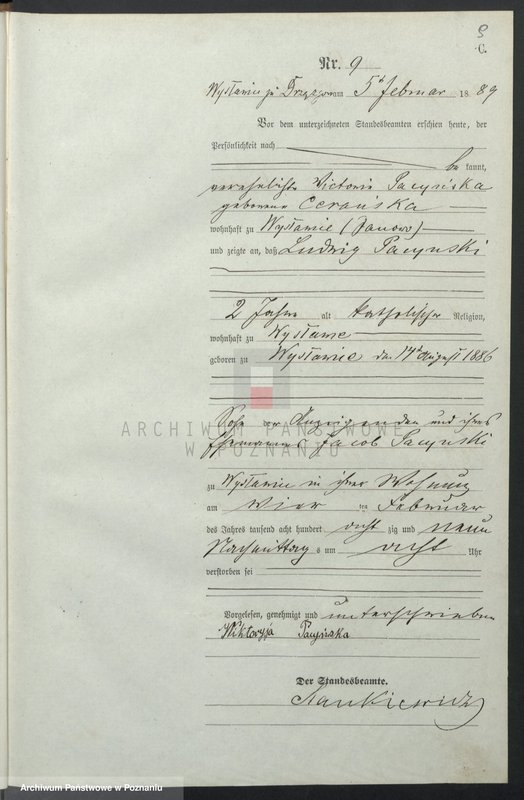 9
C.
Nr. 9
am 5t Februar 1889
Vor dem unterzeichneten Standesbeamten erschien heute, der
Persönlichkeit nach
be kannt,
verehelichte Victoria Pacyńska
geborene Cerańska
wohnhaft zu Wysławie (Janowo)
und zeigte an, daß Ludwig Pacynski
2 Jahre alt katholischer Religion,
wohnhaft zu Wysławie
geboren zu Wysławie den 14t August 1886
Sohn der Anzeigenden und ihres
Ehemannes Jacob Pacynski
ARCHIWUM PAŃSTWOWE
W POZNANIU
zu Wysławie in ihrer Wohnung
am vier ten Februar
des Jahres tausend acht hundert acht zig und neun
Nachmittag s um acht Uhr
verstorben sei
Vorgelesen, genehmigt und unterschrieben
Wiktoryja Pacyńska
Der Standesbeamte.
Stankiewicz
Archiwum Panstwowe w Poznaniu